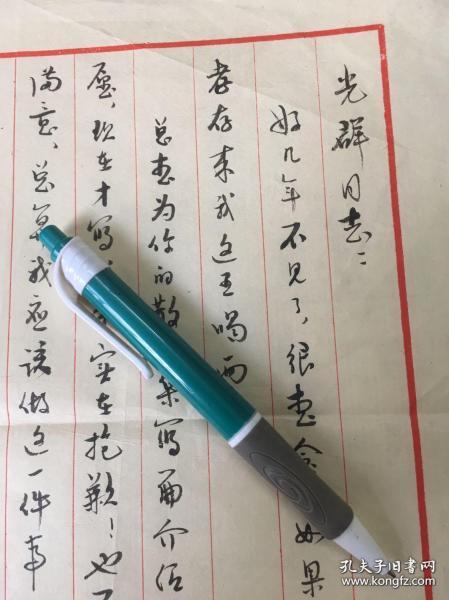 光群同志：
好几年不见了，很想念 如果
您存来我这至喝两
总想为你的散 集写篇介绍
压，现在才写， 实在抱歉！也不
满意，总算我应该做这一件事
孔夫子旧书网
www.kongfz.com